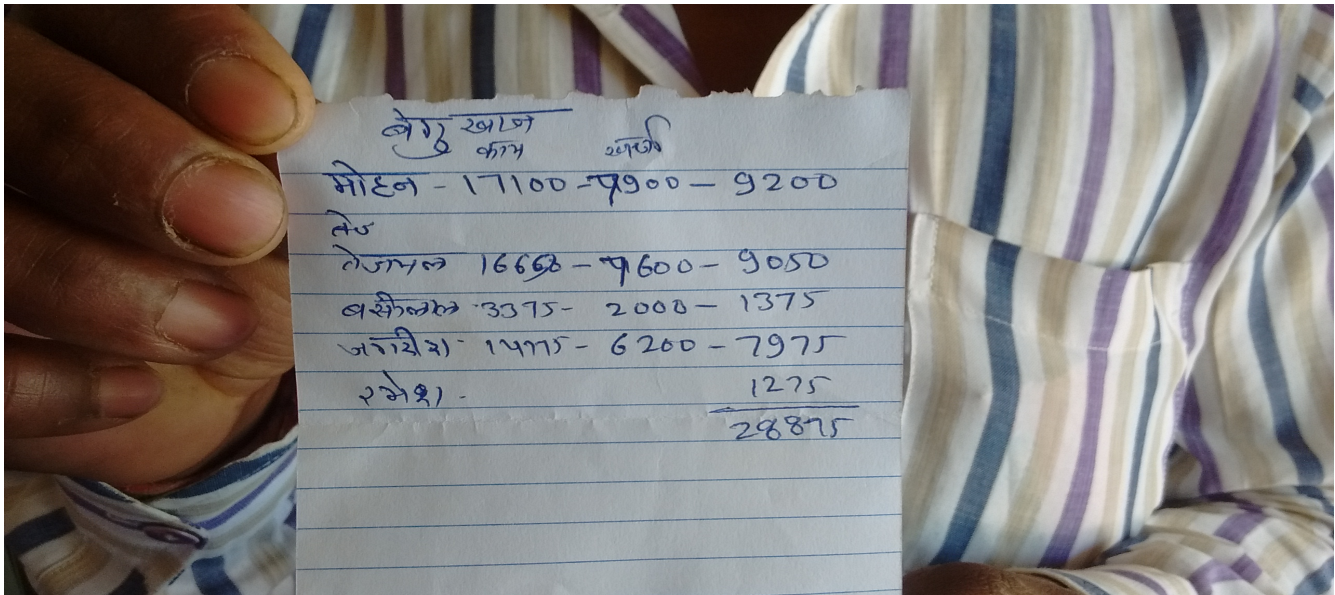 बेगु खाज
काम खर्चा
मोहन - 17100 - 7900 - 9200
तेज
तेजामल 16650 - 7600 - 9050
बंसीलाल 3375 - 2000 - 1375
जगदीश - 14175 - 6200 - 7975
रमेश - 1275
28875